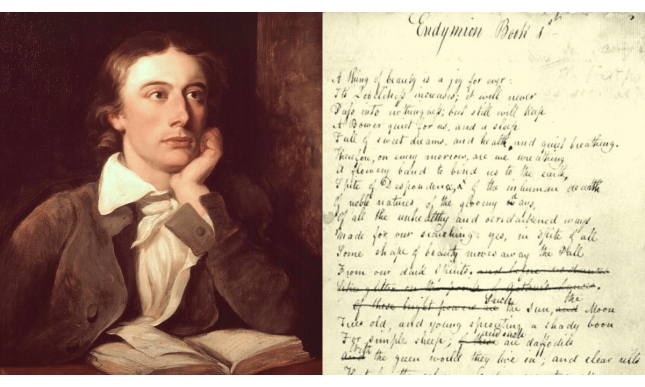 Endymion Book 1st
A thing of beauty is a joy for ever:
Its Loveliness increases; it will never
Pass into nothingness; but still will keep
A Bower quiet for us, and a sleep
Full of sweet dreams, and health, and quiet breathing.
Therefore, on every morrow, are we wreathing
A flowery band to bind us to the earth,
Spite of Despondence, of the inhuman dearth
Of noble natures, of the gloomy days,
Of all the unhealthy and oerdarkened ways
Made for our searching: yes, in spite of all
Some shape of beauty moves away the Pall
From our dark Spirits.
Such the Sun, the Moon
Trees old, and young sprouting a shady boon
For simple sheep; and such are daffodils
With the green world they live in; and clear rills